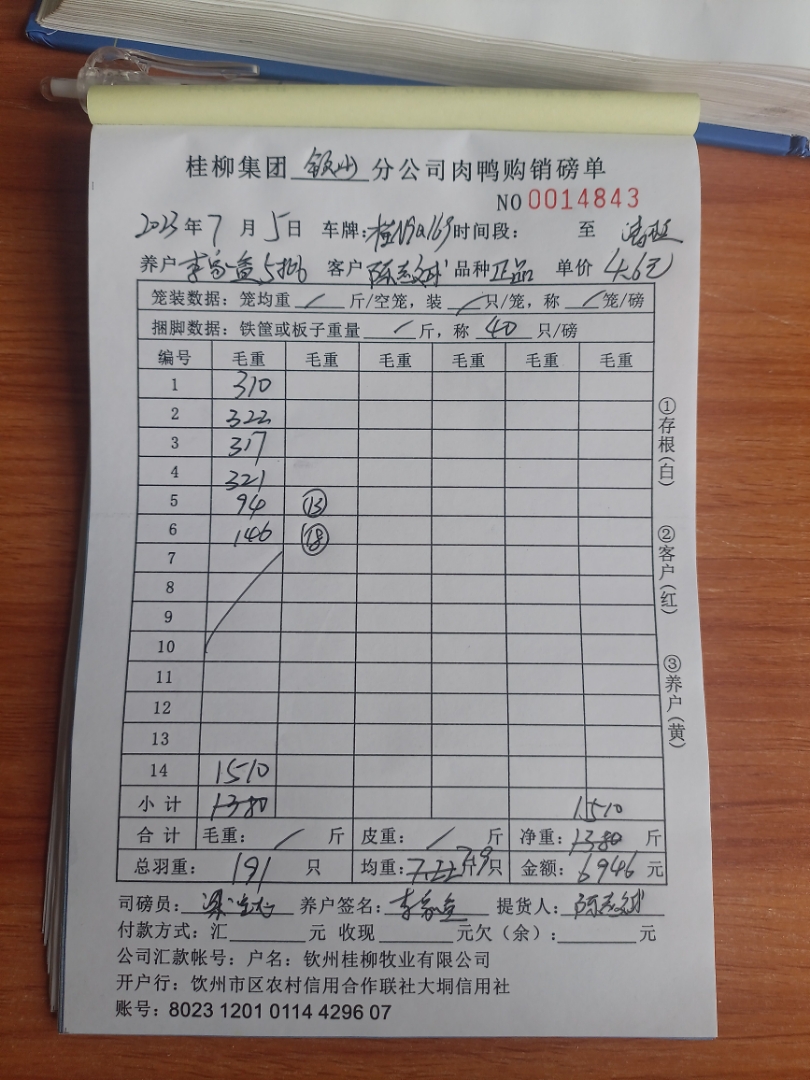 桂柳集团 钦州 分公司肉鸭购销磅单
NO 0014843
2023年7月5日 车牌:桂N9Q169时间段: 至
养户李家益5批 客户 陈志球 品种正品 单价 4.6元
笼装数据: 笼均重 / 斤/空笼, 装 / 只/笼, 称 / 笼/磅
捆脚数据: 铁筐或板子重量 / 斤, 称 40 只/磅
编号 毛重 毛重 毛重 毛重 毛重 毛重
1 310
2 322
3 317
4 321
5 94 ⑬
6 146 ⑱
7
8
9
10
11
12
13
14 1510
小计 1380 1510
合计 毛重: / 斤 皮重: / 斤 净重: 1380 斤
总羽重: 191 只 均重: 7.22 7.9 斤/只 金额: 6946 元
司磅员: 养户签名: 李家益 提货人: 陈志球
付款方式: 汇 元 收现 元欠(余): 元
公司汇款帐号: 户名: 钦州桂柳牧业有限公司
开户行: 钦州市区农村信用合作联社大垌信用社
账号: 8023 1201 0114 4296 07
①存根(白)
②客户(红)
③养户(黄)